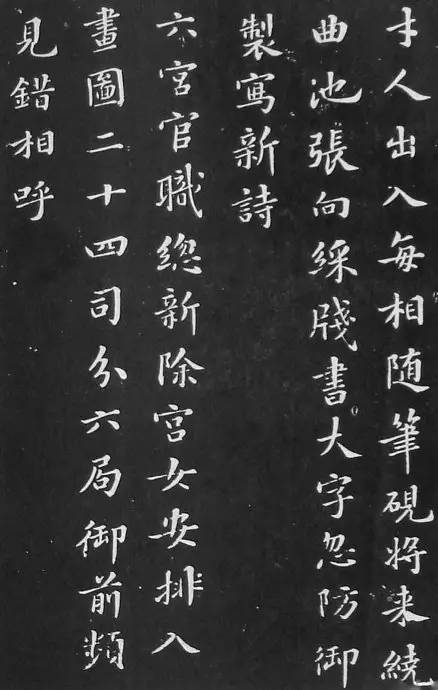 才人出入每相随筆硯將来繞
曲池張向綵牋書大字忽防御
製寫新詩
六宮官職総新除宫女安排入
畫圖二十四司分六局御前頻
見錯相呼